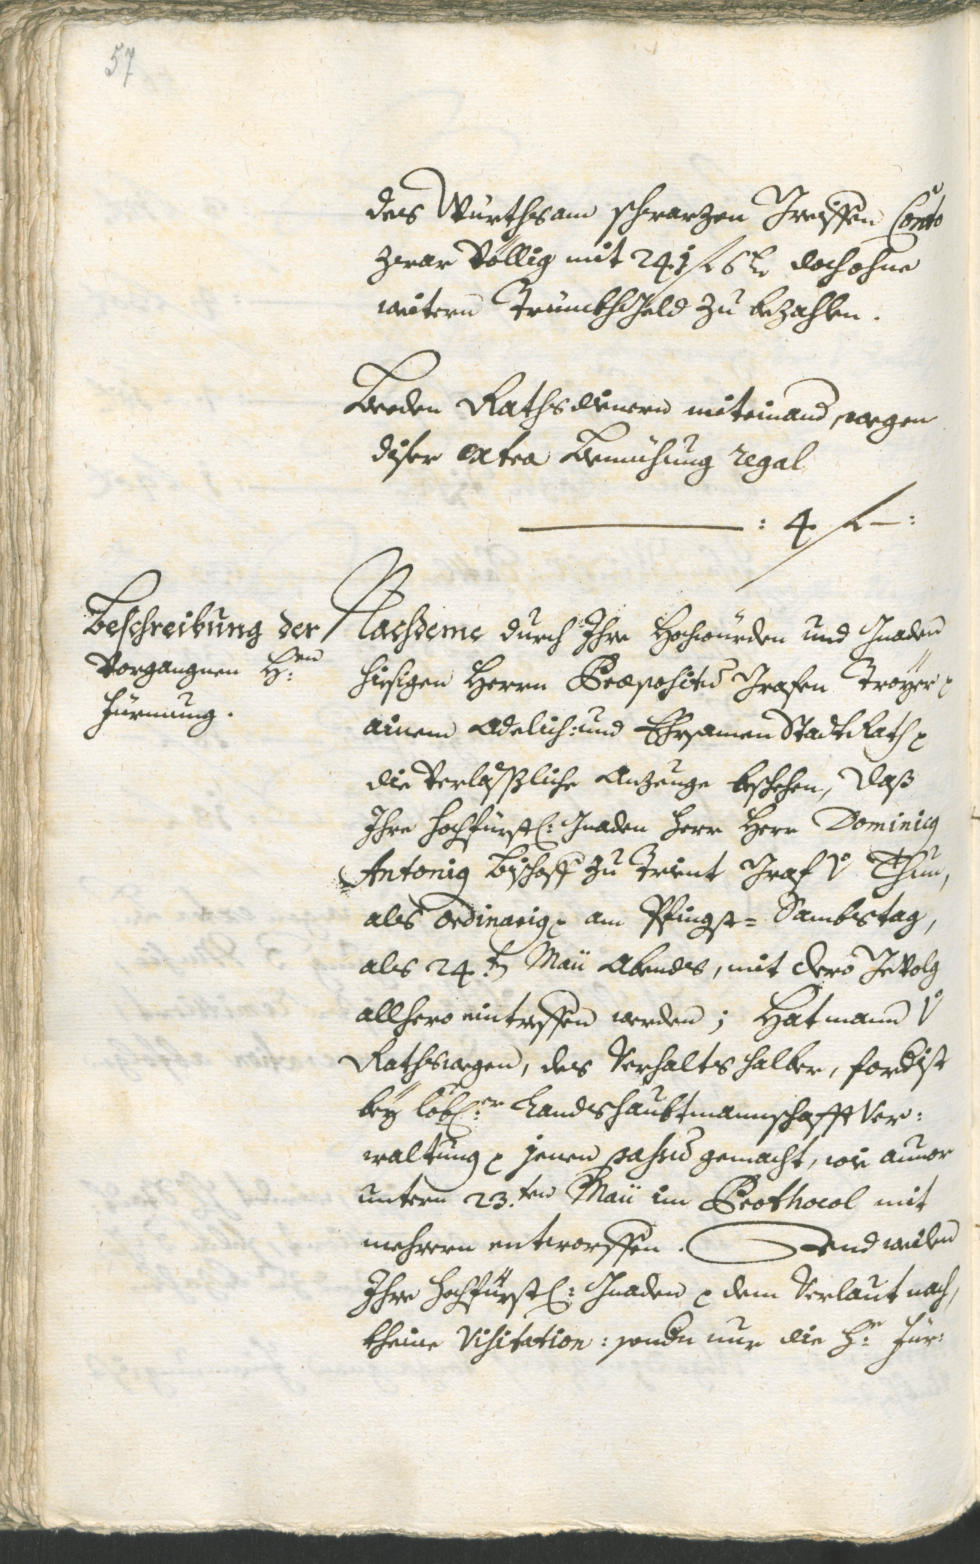 57
des Würths am schwarzen Greiffen Conto
zwar völlig mit 241 f 6 kr doch ohne
weitern Trünckhgeld zu bezahlen.
Beeden Rathsdienern miteinand, wegen
diser extra Bemüehung regal
: 4 f — :
Beschreibung der
Vorgangnen H:en
Fürmung.
Nachdeme durch Ihre Hochwürden und Gnaden
hiesigen Herrn Præpositum Grafen Troyer
ainem Adelich: und Ehrsamen Stadt Rath
die verläßliche Anzeuge beschehen, daß
Ihre hochfürstl: Gnaden Herr Herr Dominicus
Antonius Bischoff zu Trient Graf v Thun,
als Ordinarius am Pfingst= Sambstag,
als 24.ten Maii Abends, mit dero Gevolg
allhero eintreffen werden; Hat mann v
Raths wegen, des Verhalts halber, fordist
bey löbl:er Landshaubtmannschafft Ver:
waltung jenen passum gemacht, wie anvor
untern 23.ten Maii im Prothocol mit
mehrern entworffen. Und weilen
Ihre hochfürstl: Gnaden dem Verlaut nach,
kheine Visitation: sondern nur die H: Für: